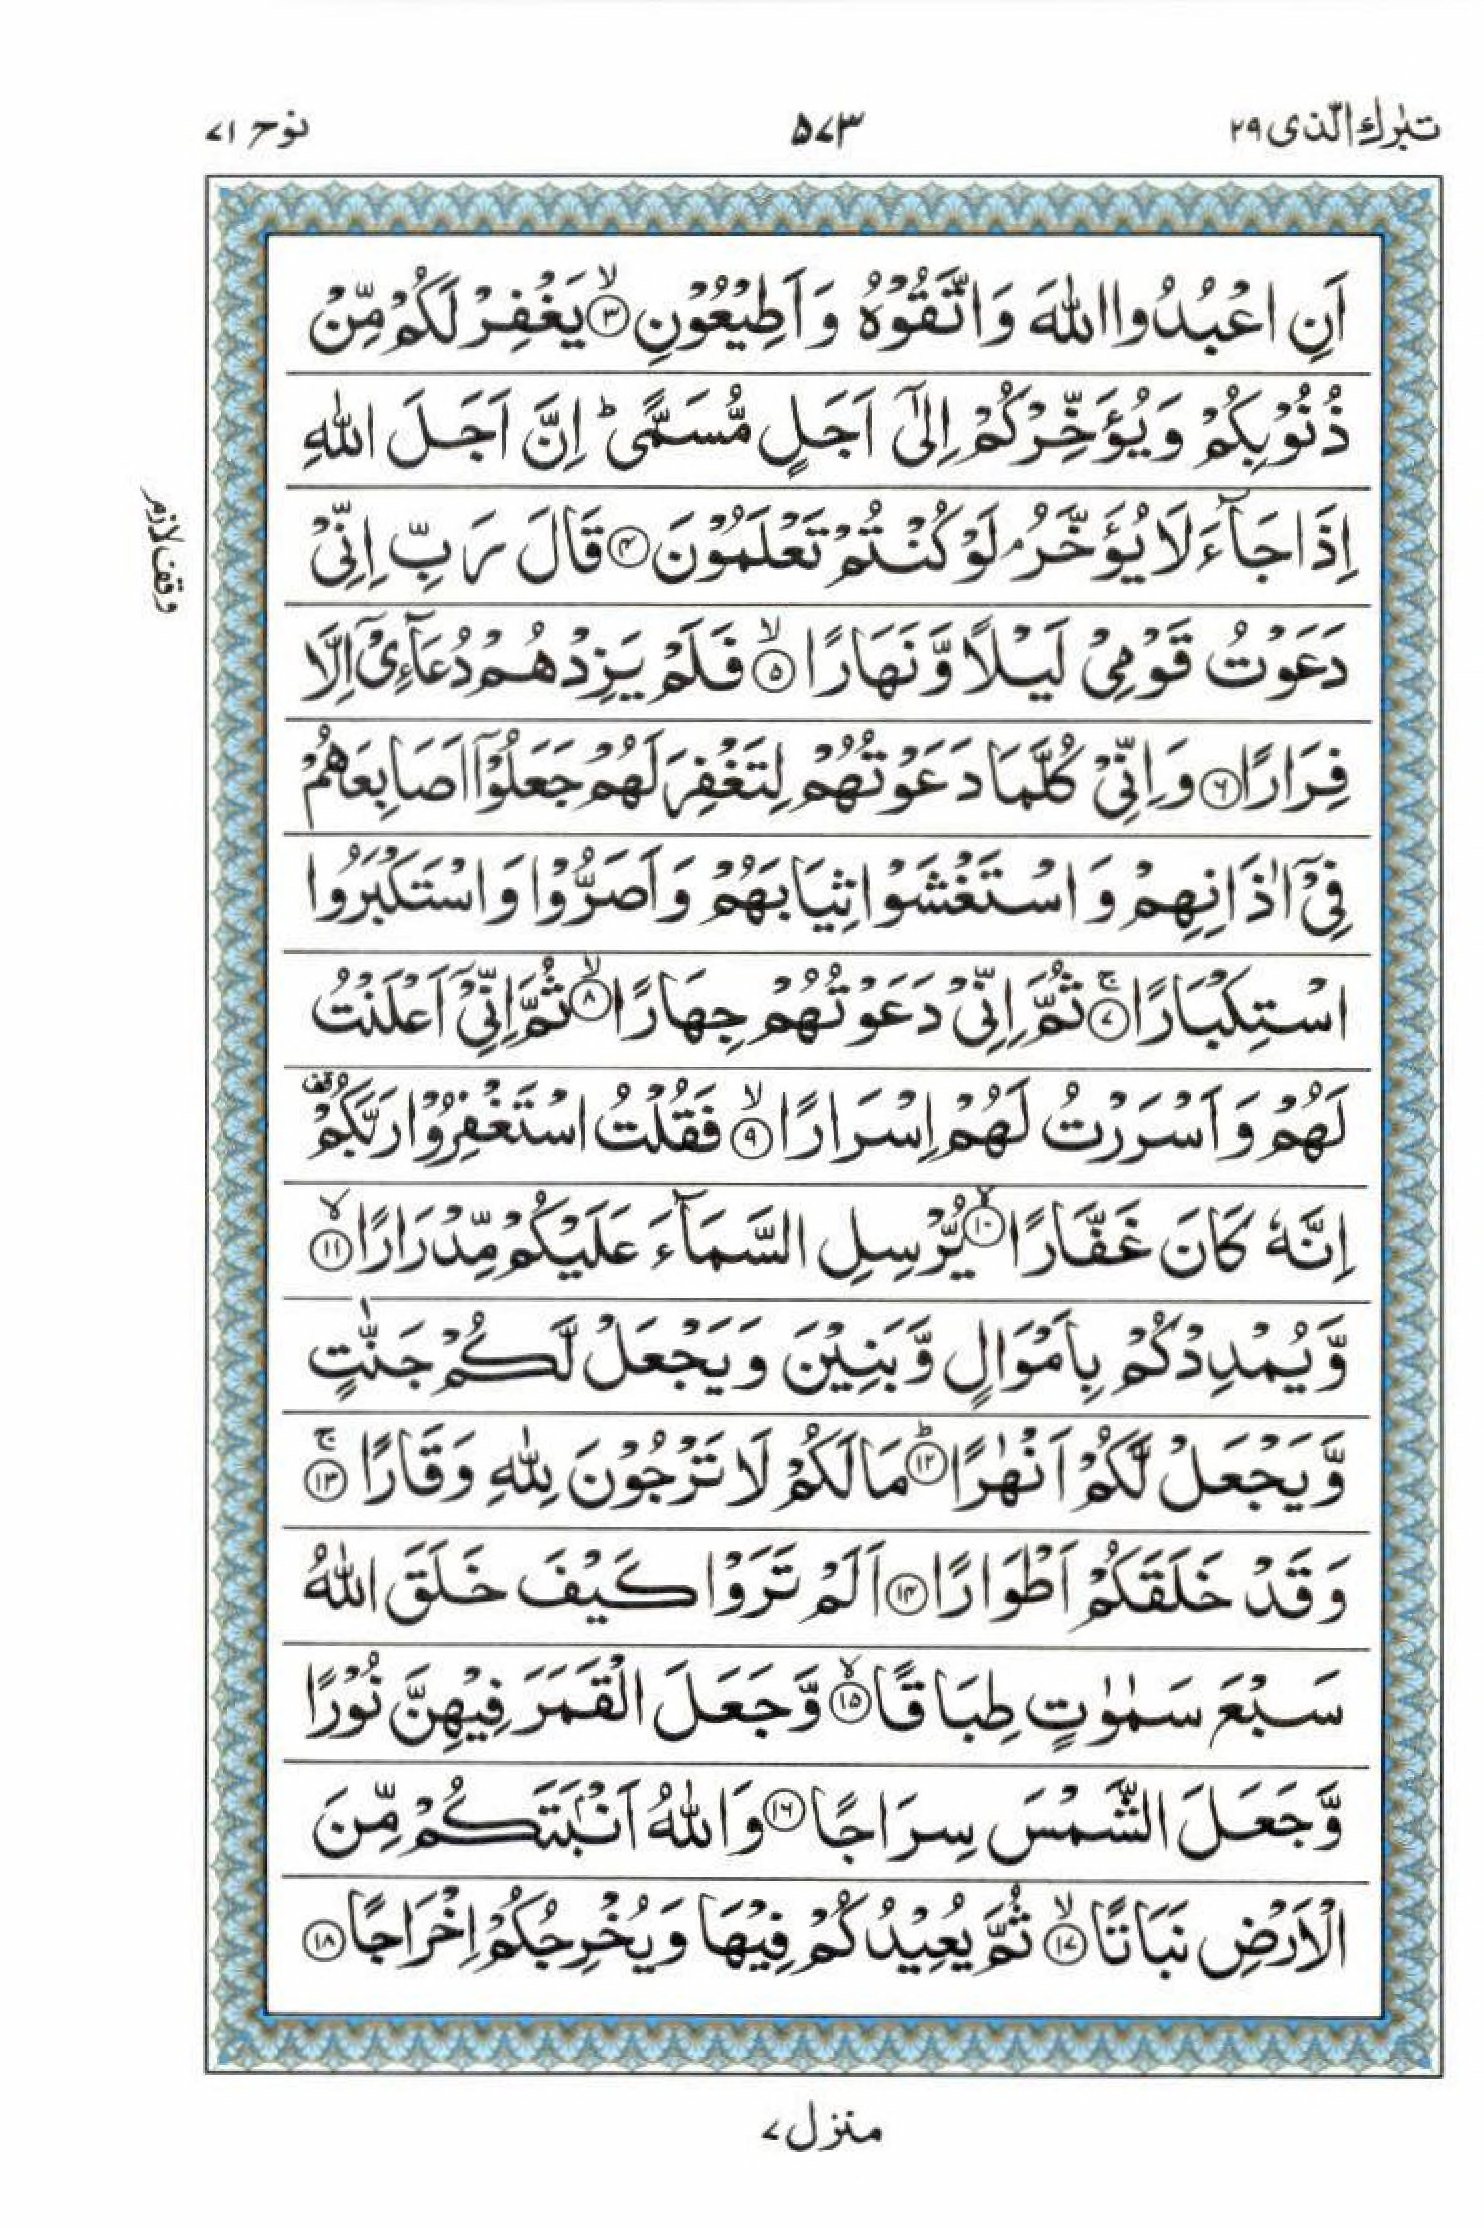 تبٰرك الّذی ۲۹
۵۷۳
نوح ۷۱
اَنِ اعْبُدُوا اللّٰهَ وَاتَّقُوْهُ وَاَطِیْعُوْنِ ۙ﴿۳﴾ یَغْفِرْ لَكُمْ مِّنْ
ذُنُوْبِكُمْ وَیُؤَخِّرْكُمْ اِلٰۤی اَجَلٍ مُّسَمًّی ؕ اِنَّ اَجَلَ اللّٰهِ
اِذَا جَآءَ لَا یُؤَخَّرُ ۘ لَوْ كُنْتُمْ تَعْلَمُوْنَ ﴿۴﴾ قَالَ رَبِّ اِنِّیْ
وقف لازم
دَعَوْتُ قَوْمِیْ لَیْلًا وَّنَهَارًا ۙ﴿۵﴾ فَلَمْ یَزِدْهُمْ دُعَآءِیْۤ اِلَّا
فِرَارًا ﴿۶﴾ وَاِنِّیْ كُلَّمَا دَعَوْتُهُمْ لِتَغْفِرَ لَهُمْ جَعَلُوْۤا اَصَابِعَهُمْ
فِیْۤ اٰذَانِهِمْ وَاسْتَغْشَوْا ثِیَابَهُمْ وَاَصَرُّوْا وَاسْتَكْبَرُوا
اسْتِكْبَارًا ۚ﴿۷﴾ ثُمَّ اِنِّیْ دَعَوْتُهُمْ جِهَارًا ۙ﴿۸﴾ ثُمَّ اِنِّیْۤ اَعْلَنْتُ
لَهُمْ وَاَسْرَرْتُ لَهُمْ اِسْرَارًا ۙ﴿۹﴾ فَقُلْتُ اسْتَغْفِرُوْا رَبَّكُمْ قف
اِنَّهٗ كَانَ غَفَّارًا ۙ﴿۱۰﴾ یُّرْسِلِ السَّمَآءَ عَلَیْكُمْ مِّدْرَارًا ۙ﴿۱۱﴾
وَّیُمْدِدْكُمْ بِاَمْوَالٍ وَّبَنِیْنَ وَیَجْعَلْ لَّكُمْ جَنّٰتٍ
وَّیَجْعَلْ لَّكُمْ اَنْهٰرًا ؕ﴿۱۲﴾ مَا لَكُمْ لَا تَرْجُوْنَ لِلّٰهِ وَقَارًا ۚ﴿۱۳﴾
وَقَدْ خَلَقَكُمْ اَطْوَارًا ﴿۱۴﴾ اَلَمْ تَرَوْا كَیْفَ خَلَقَ اللّٰهُ
سَبْعَ سَمٰوٰتٍ طِبَاقًا ۙ﴿۱۵﴾ وَّجَعَلَ الْقَمَرَ فِیْهِنَّ نُوْرًا
وَّجَعَلَ الشَّمْسَ سِرَاجًا ﴿۱۶﴾ وَاللّٰهُ اَنْۢبَتَكُمْ مِّنَ
الْاَرْضِ نَبَاتًا ۙ﴿۱۷﴾ ثُمَّ یُعِیْدُكُمْ فِیْهَا وَیُخْرِجُكُمْ اِخْرَاجًا ﴿۱۸﴾
منزل ۷